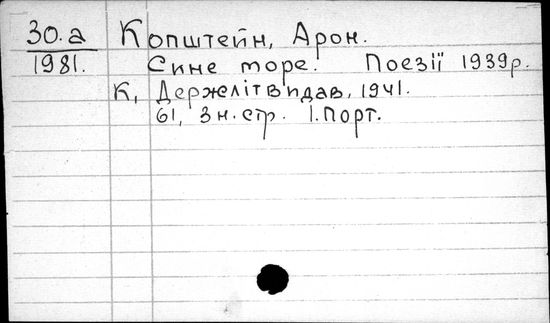 30.а Копштейн, Арон.
1981. Сине море. Поезії 1939р.
К, Держлітвидав, 1941.
61, 3 н.стр. 1.порт.